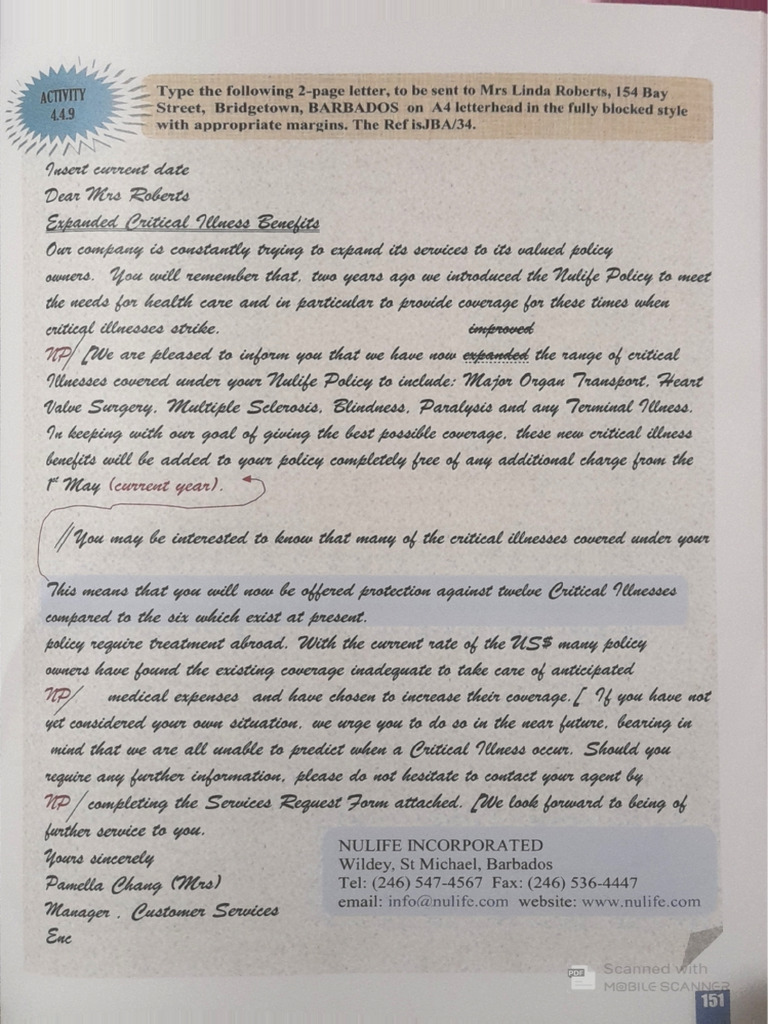 ACTIVITY
4.4.9
Type the following 2-page letter, to be sent to Mrs Linda Roberts, 154 Bay
Street, Bridgetown, BARBADOS on A4 letterhead in the fully blocked style
with appropriate margins. The Ref isJBA/34.
Insert current date
Dear Mrs Roberts
Expanded Critical Illness Benefits
Our company is constantly trying to expand its services to its valued policy
owners. You will remember that, two years ago we introduced the Nulife Policy to meet
the needs for health care and in particular to provide coverage for these times when
critical illnesses strike.
improved
NP/ [We are pleased to inform you that we have now expanded the range of critical
Illnesses covered under your Nulife Policy to include: Major Organ Transport, Heart
Valve Surgery, Multiple Sclerosis, Blindness, Paralysis and any Terminal Illness.
In keeping with our goal of giving the best possible coverage, these new critical illness
benefits will be added to your policy completely free of any additional charge from the
1st May (current year).
// You may be interested to know that many of the critical illnesses covered under your
This means that you will now be offered protection against twelve Critical Illnesses
compared to the six which exist at present.
policy require treatment abroad. With the current rate of the US$ many policy
owners have found the existing coverage inadequate to take care of anticipated
NP/ medical expenses and have chosen to increase their coverage.[ If you have not
yet considered your own situation, we urge you to do so in the near future, bearing in
mind that we are all unable to predict when a Critical Illness occur. Should you
require any further information, please do not hesitate to contact your agent by
NP/ completing the Services Request Form attached. [We look forward to being of
further service to you.
Yours sincerely
Pamella Chang (Mrs)
Manager, Customer Services
Enc
NULIFE INCORPORATED
Wildey, St Michael, Barbados
Tel: (246) 547-4567 Fax: (246) 536-4447
email: info@nulife.com website: www.nulife.com
PDF
Scanned with
MOBILE SCANNER
151